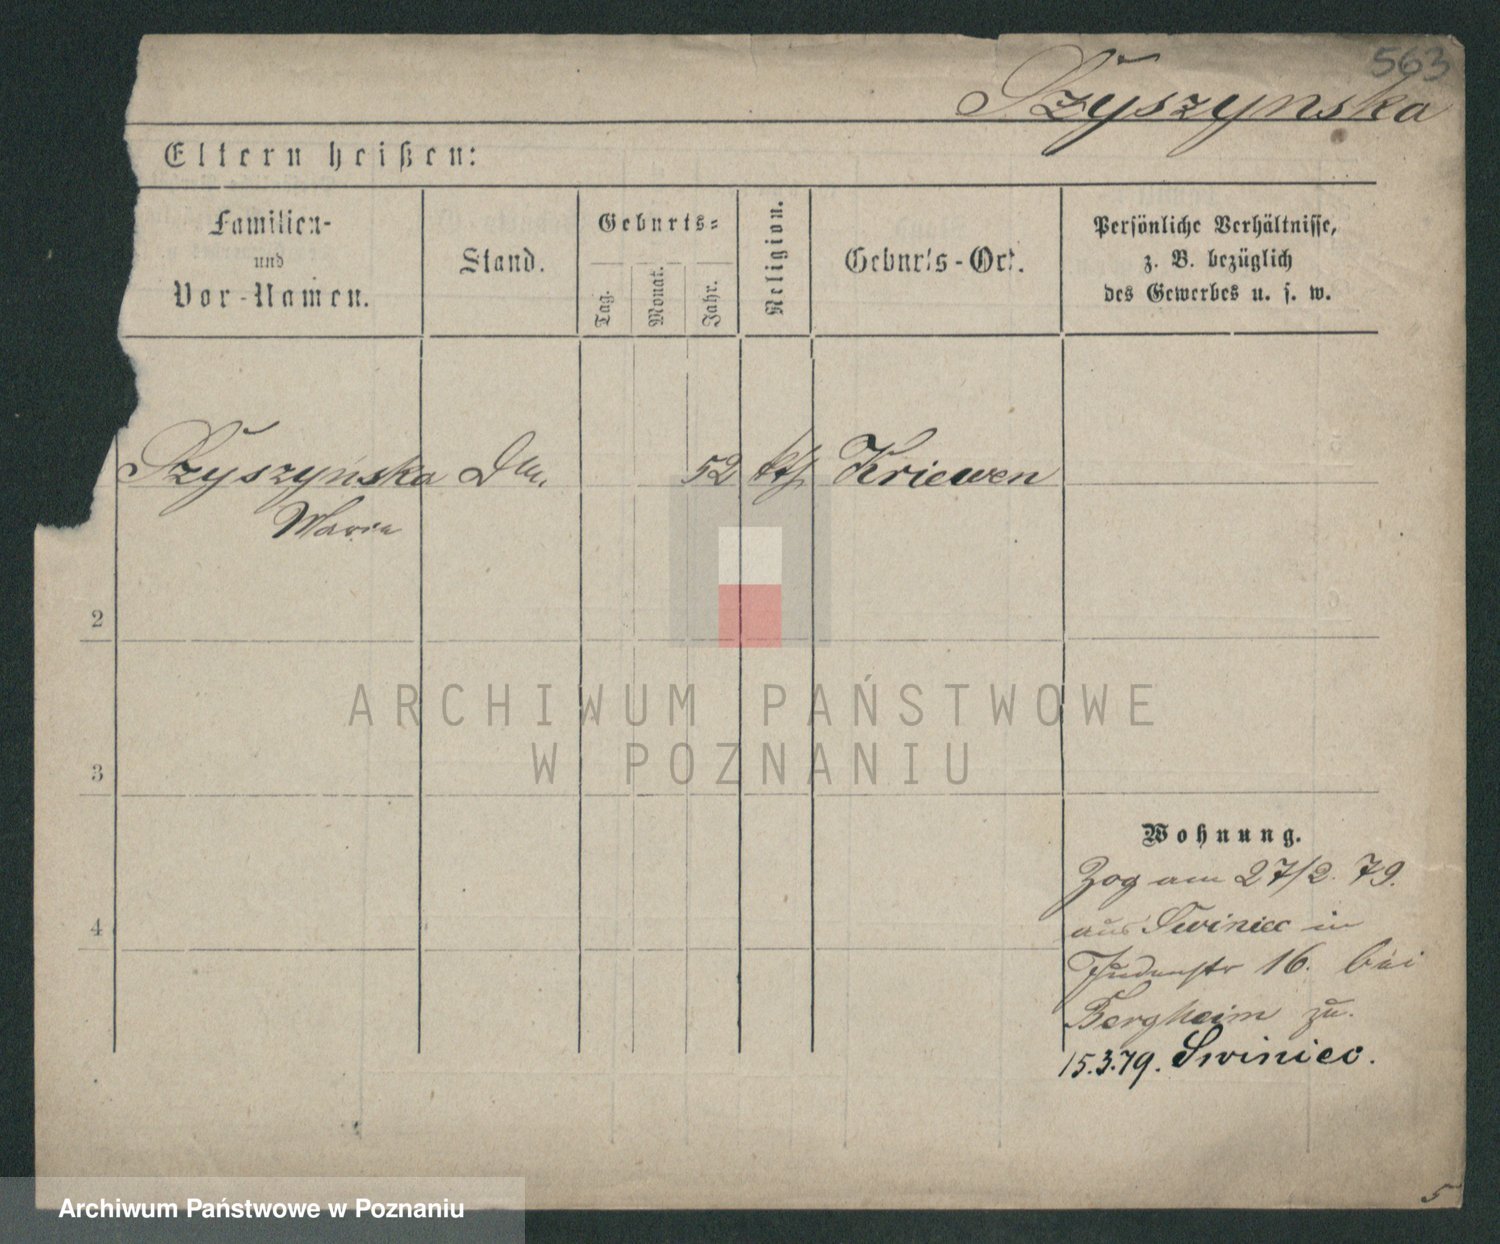 563
Szyszynska
Eltern heißen:
Familien-
und
Vor-Namen.
Stand.
Geburts-
Tag.
Monat.
Jahr.
Religion.
Geburts-Ort.
Persönliche Verhältnisse,
z. B. bezüglich
des Gewerbes u. s. w.
Szyszyńska 52 kth Kriewen
Maria
2
3
4
ARCHIWUM PAŃSTWOWE
W POZNANIU
Wohnung.
Zog am 27/2. 79.
aus Swiniec in
Judenstr 16. bei
Bergheim zu.
15.3.79. Swiniec.
5
Archiwum Państwowe w Poznaniu